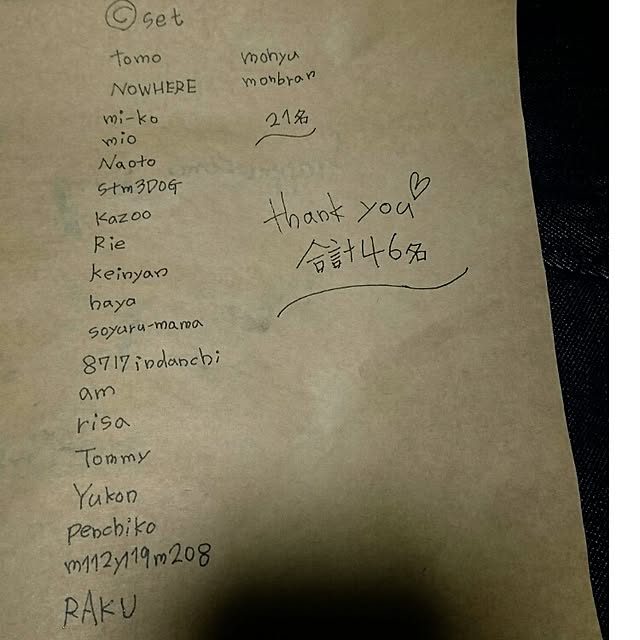 Ⓒ set
Tomo
NOWHERE
mi-ko
mio
Naoto
Stm3DOG
Kazoo
Rie
keinyan
haya
soyuru-mama
8717indanchi
am
risa
Tommy
Yukon
penchiko
m112y119m208
RAKU
mohyu
monbran
21名
thank you♡
合計46名